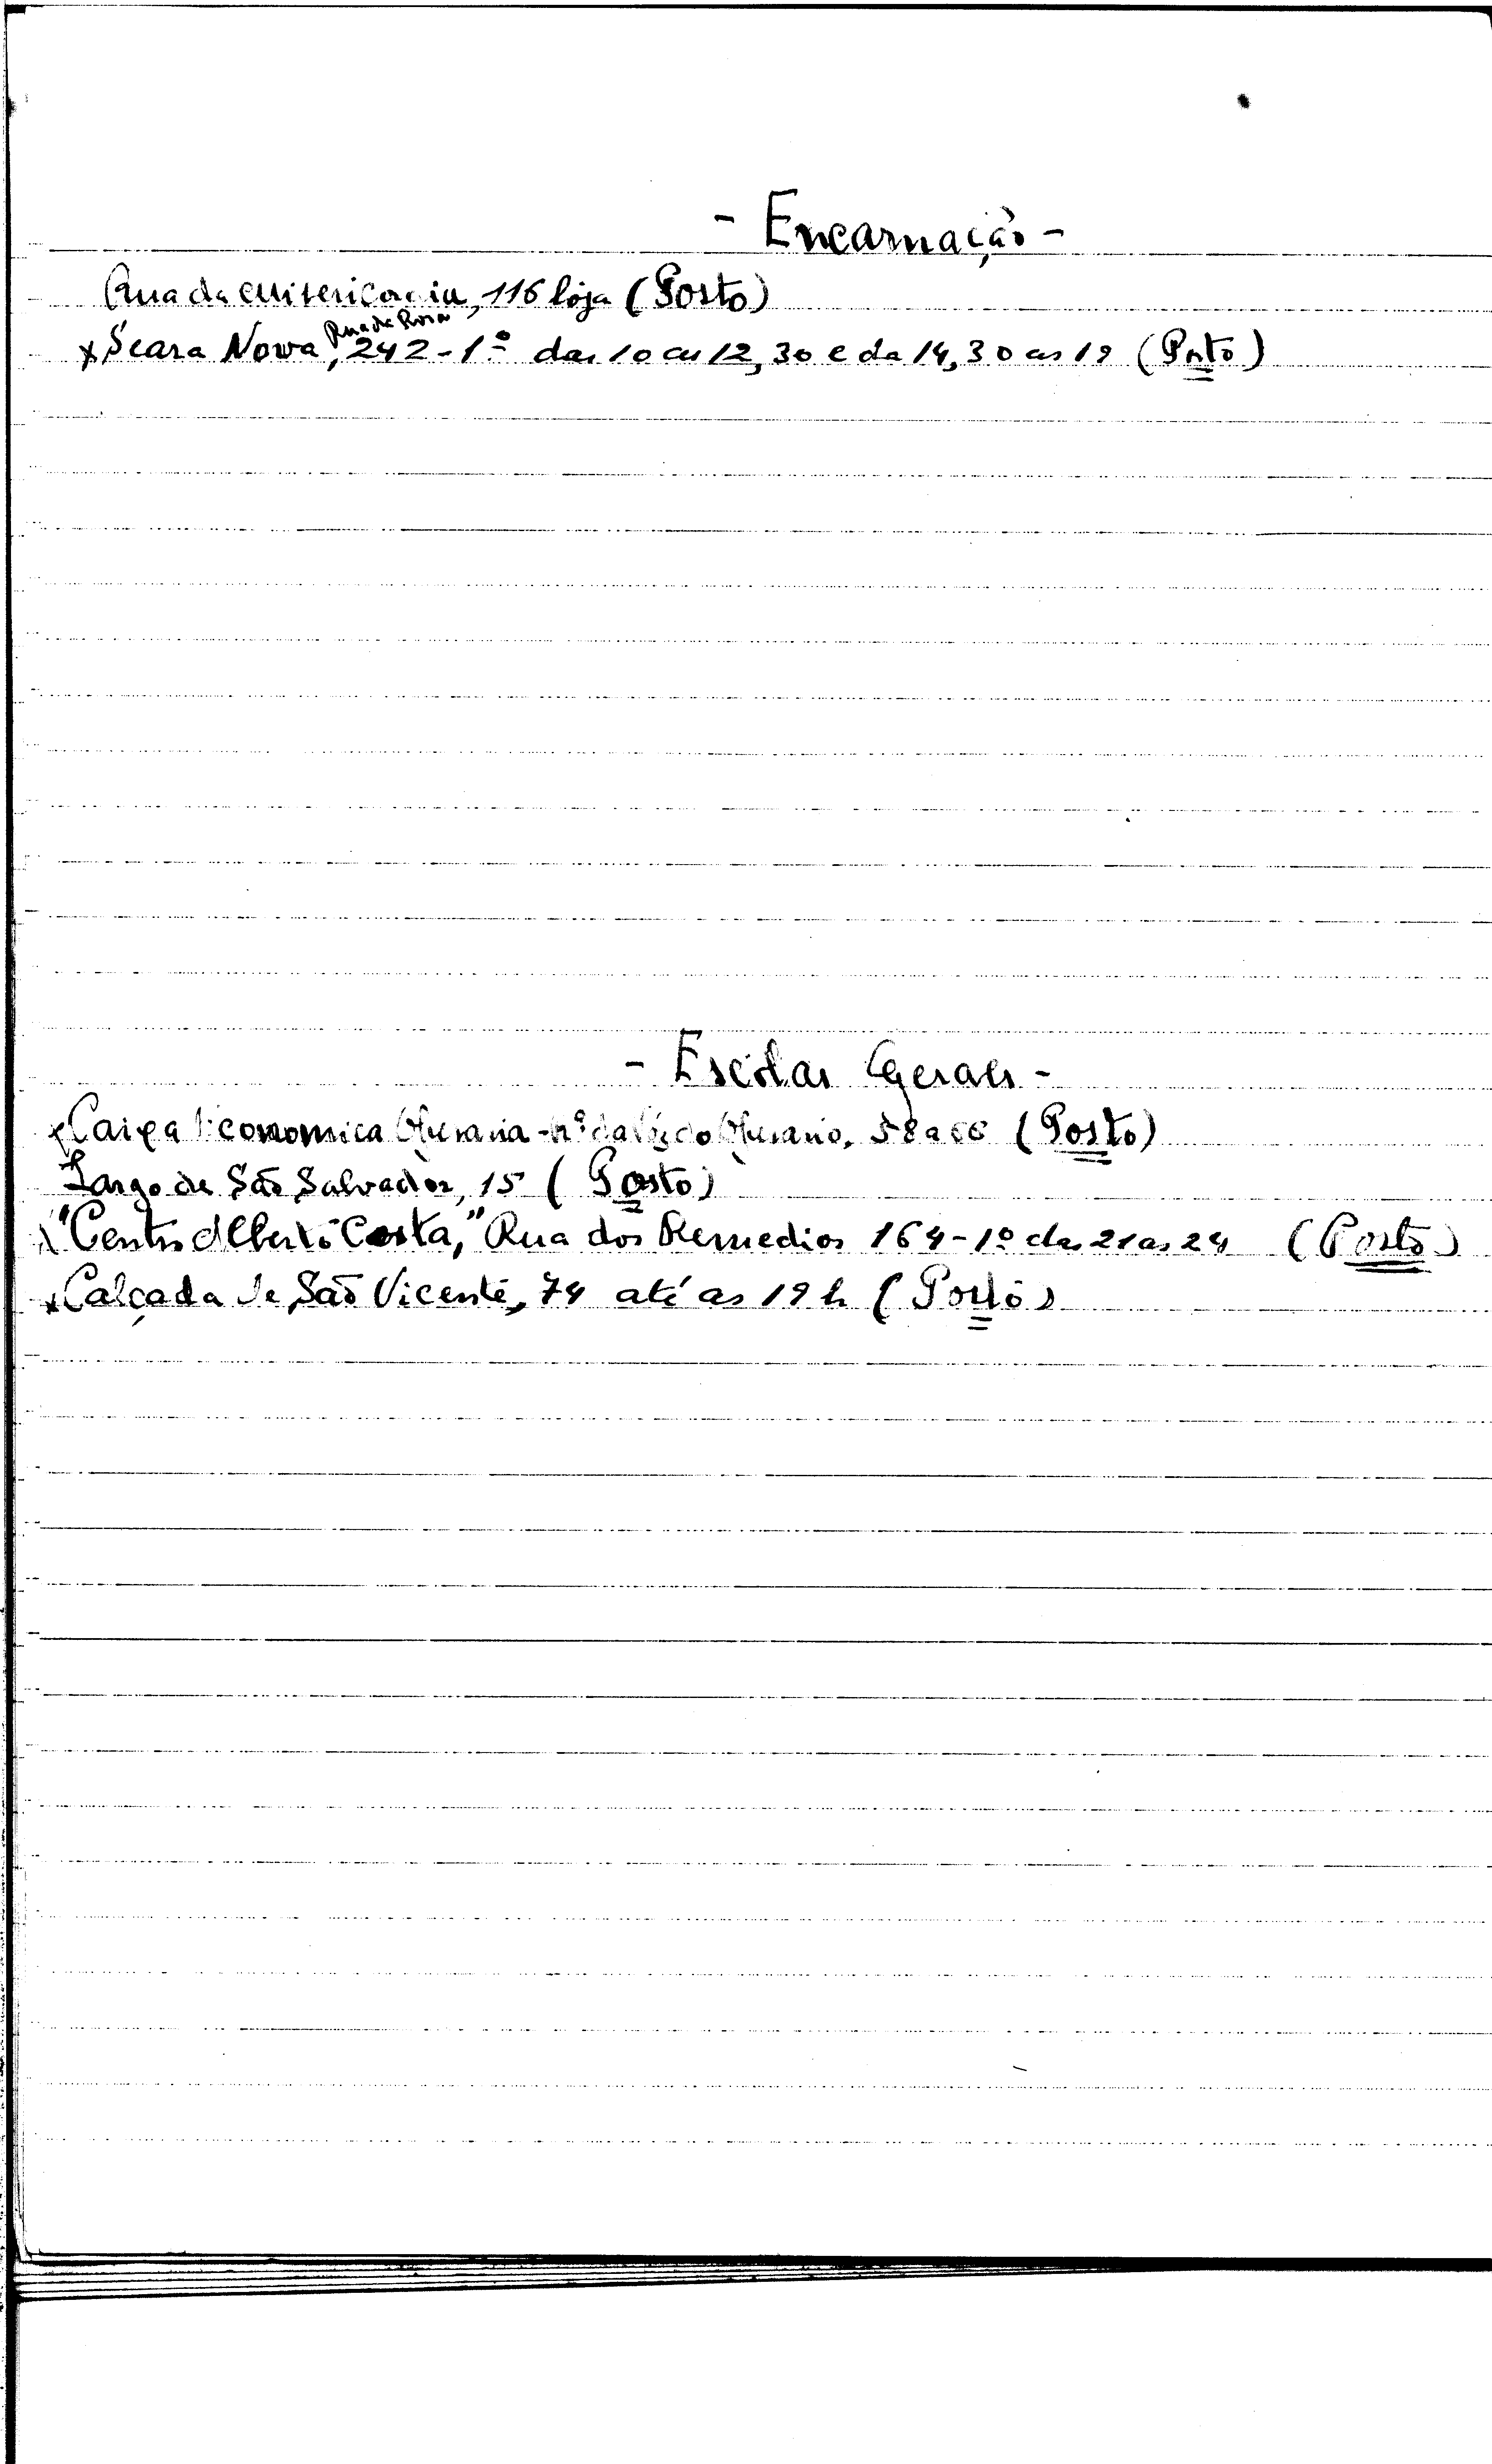 - Encarnação -
Rua da Misericordia, 116 loja (Posto)
x Seara Nova, Rua da Rosa 242-1º das 10 as 12,30 e da 14,30 as 19 (Posto)
- Escolas Gerais -
x Caixa Economica Operaria - Operario, 58 a 66 (Posto)
Largo de São Salvador, 15 (Posto)
x "Centro Alberto Costa," Rua dos Remedios 164-1º das 21 as 24 (Posto)
x Calçada de São Vicente, 74 até as 19 h (Posto)